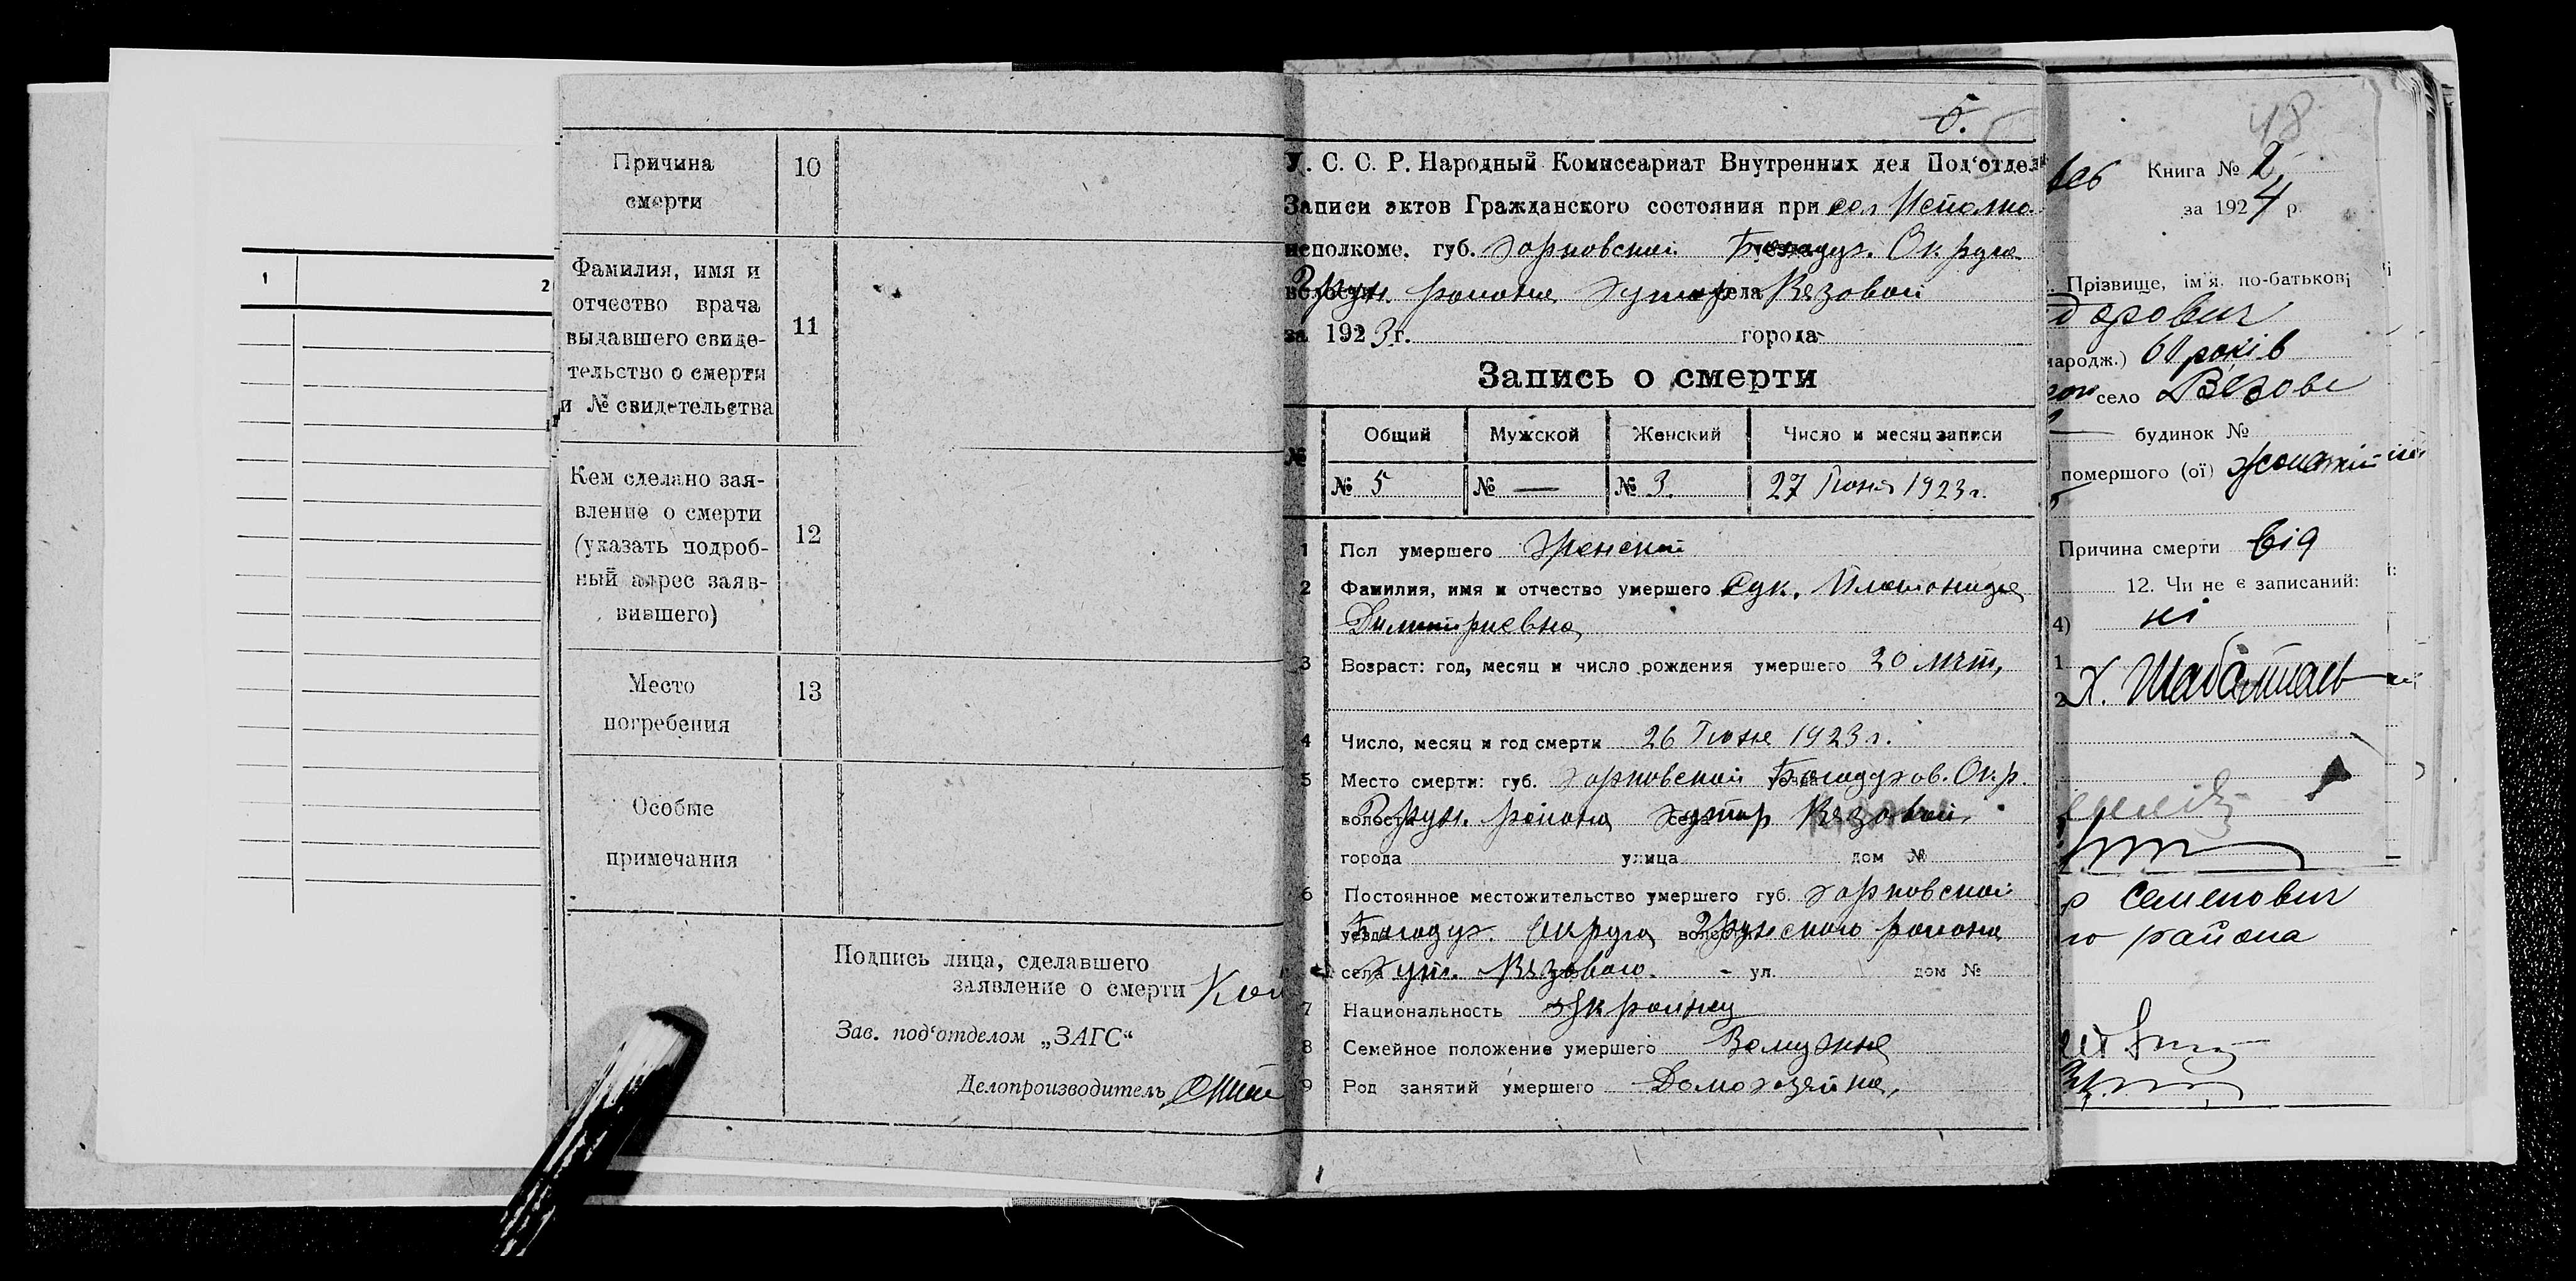 1
2
Причина
смерти
10
Фамилия, имя и
отчество врача
выдавшего свиде-
тельство о смерти
и № свидетельства
11
Кем сделано зая-
вление о смерти
(указать подроб-
ный адрес заяв-
вившего)
12
Место
погребения
13
Особые
примечания
Подпись лица, сделавшего
заявление о смерти
Зав. под‘отделом „ЗАГС“
Делопроизводитель
5.
У. С. С. Р. Народный Комиссариат Внутренних дел Под‘отдел
Записи актов Гражданского состояния при сел
исполкоме. губ. Харковской Богодух. Округа
района хутор села Вязовой
за 1923 г. города
Запись о смерти
№ Общий Мужской Женский Число и месяц записи
№ 5 № — № 3. 27 Июня 1923 г.
1 Пол умершего Женский
2 Фамилия, имя и отчество умершего Сук. Платонида
Димитриевна
3 Возраст: год, месяц и число рождения умершего 20 лет,
4 Число, месяц и год смерти 26 Июня 1923 г.
5 Место смерти: губ. Харковской Богодухов. Окр.
волости района хутор Вязовой
города улица дом №
6 Постоянное местожительство умершего губ. Харковской
уезда Богодух. Округа района
села хут. Вязового. - ул. дом №
7 Национальность Украинец
8 Семейное положение умершего Замужня
9 Род занятий умершего Домохозяйка,
48
Книга № 2
за 1924 р.
Прізвище, ім‘я, по-батькові
дорович
народж.) 60 років
село Вязове
будинок №
помершого (ої)
Причина смерти від
12. Чи не є записаний:
4) ні
1
2 Х.
Семенович
го района